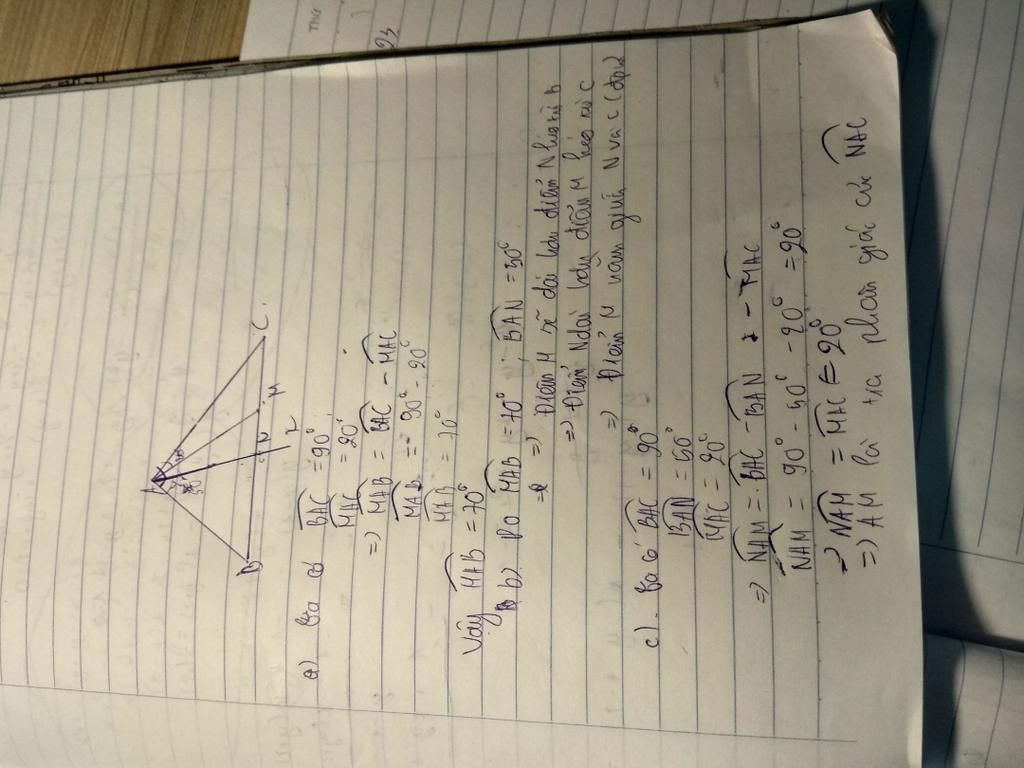 A
B
C
N
M
x
50°
20°
a) Ta có BAC = 90°
MAC = 20°
=> MAB = BAC - MAC
MAB = 90° - 20°
MAB = 70°
Vậy MAB = 70°
b) Do MAB = 70°; BAN = 50°
=> Điểm M sẽ dài hơn điểm N hướng B
=> Điểm N dài hơn điểm M C
=> Điểm M nằm giữa N và C (đpcm)
c). Ta có BAC = 90°
BAN = 50°
MAC = 20°
=> NAM = BAC - BAN - MAC
NAM = 90° - 50° - 20° = 20°
=> NAM = MAC = 20°
=> AM là tia phân giác của NAC
23